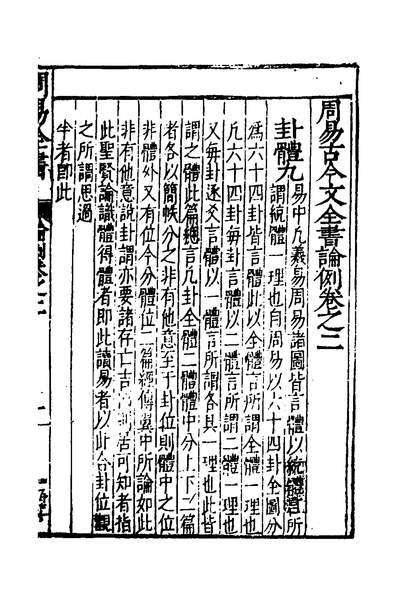 周易古今文全書論例卷之二
卦體九
易中凡羲易周易諸圖皆言體以統體言所
謂統體一理也自周易以六十四卦全圖分
爲六十四卦皆言體此以全體言所謂全體一理也
凡六十四卦每卦言體以二體言所謂二體一理也
又每卦逐爻言體以一體言所謂各具一理也此皆
謂之體此篇總言凡卦全體二體體中分上下二篇
者各以簡帙分之非有他意至于卦位則體中之位
非體外又有位今分體位二篇經傳翼中所論如此
非有他意說卦謂亦要諸存亡吉凶則居可知者指
此聖賢論識體得體者即此讀易者以此合卦位觀
之所謂思過
半者即此
周易全書
論例卷之二